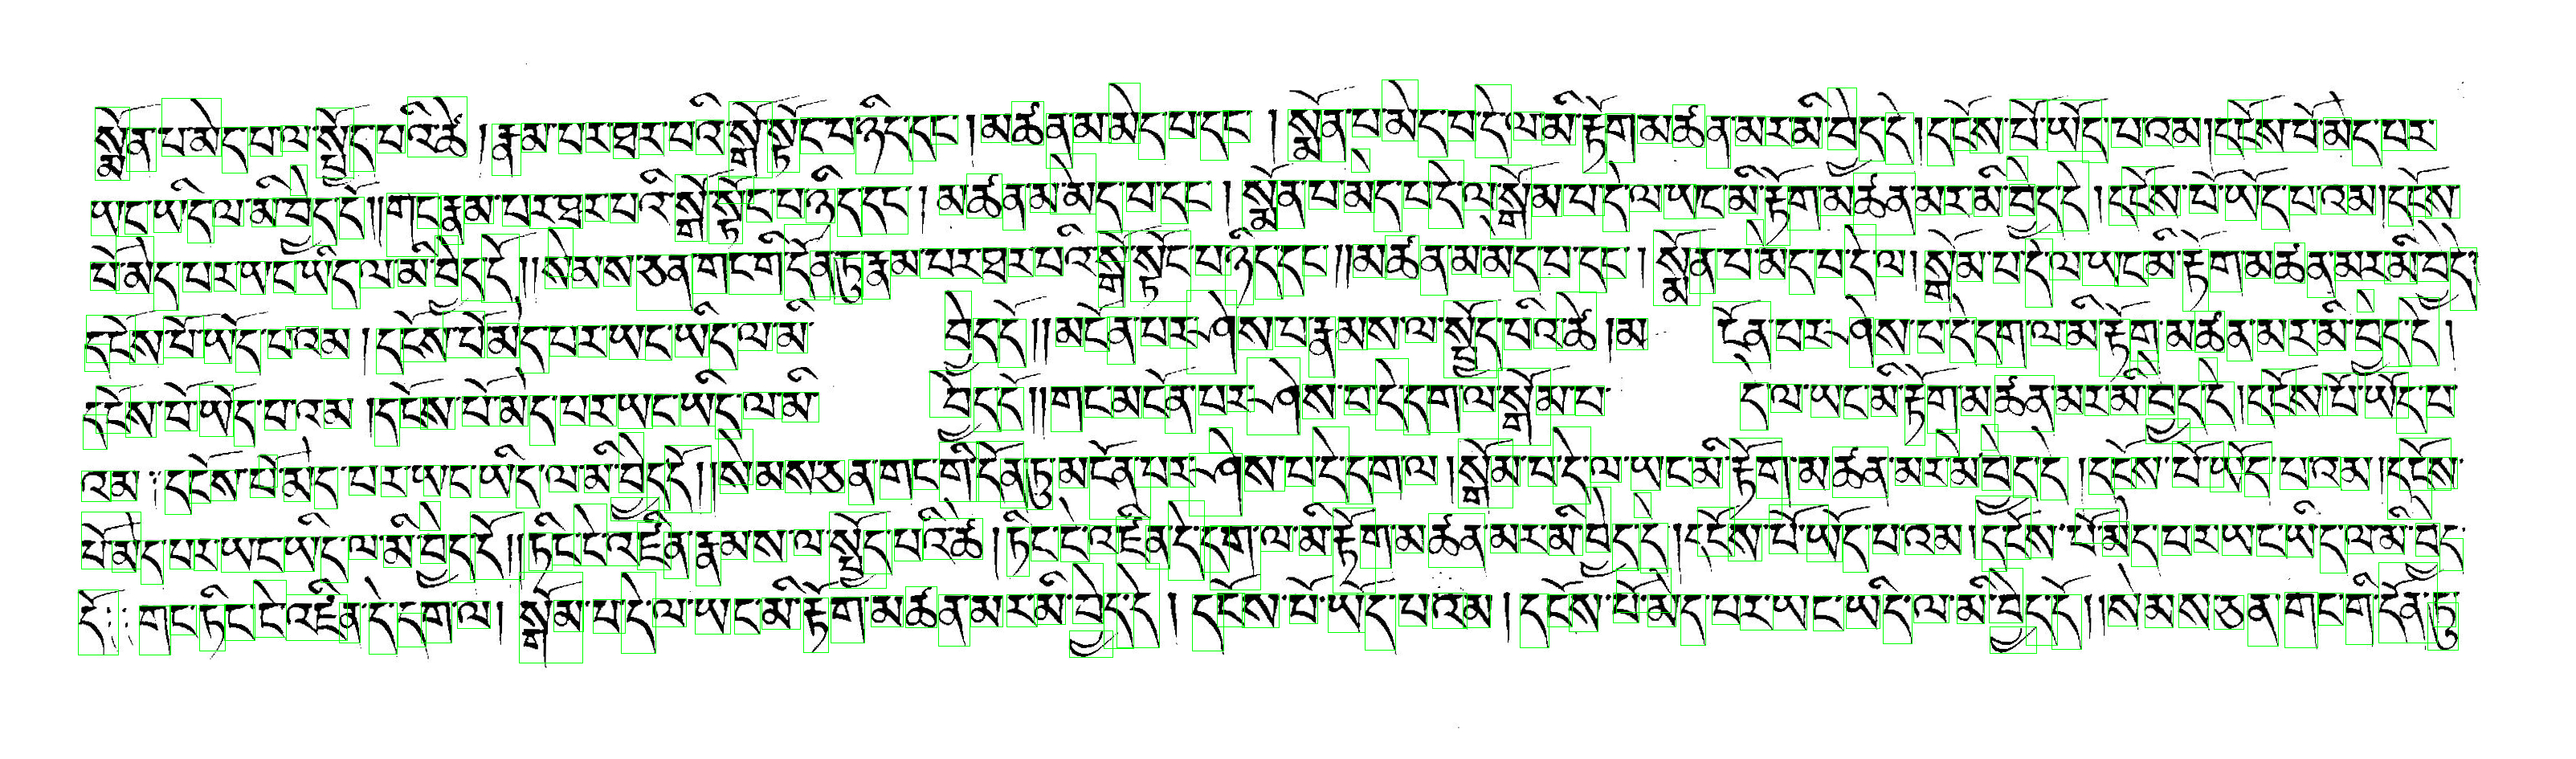 སྨོན་པ་མེད་པ་ལ་སྤྱོད་པའི་ཚེ །རྣམ་པར་ཐར་པའི་སྒོ་སྟོང་པ་ཉིད་དང །མཚན་མ་མེད་པ་དང །སྨོན་པ་མེད་པ་དེ་ལ་མི་རྟོག་མཚན་མར་མི་བྱེད་དེ།དངོས་པོ་ཡོད་པའམ།དངོས་པོ་མེད་པར་
ཡང་ཡིད་ལ་མི་བྱེད་དོ།།གང་རྣམ་པར་ཐར་པའི་སྒོ་སྟོང་པ་ཉིད་དང །མཚན་མ་མེད་པ་དང །སྨོན་པ་མེད་པ་དེ་ལ་སྒོམ་པ་དེ་ལ་ཡང་མི་རྟོག་མཚན་མར་མི་བྱེད་དེ །དངོས་པོ་ཡོད་པའམ།དངོས་
པོ་མེད་པར་ཡང་ཡིད་ལ་མི་བྱེད་དོ།།སེམས་ཅན་གང་གི་དོན་ཏུ་རྣམ་པར་ཐར་པའི་སྒོ་སྟོང་པ་ཉིད་དང །།མཚན་མ་མེད་པ་དང །སྨོན་པ་མེད་པ་དེ་ལ །སྒོམ་པ་དེ་ལ་ཡང་མི་རྟོག་མཚན་མར་མི་བྱེད་དེ།
དངོས་པོ་ཡོད་པའམ །དངོས་པོ་མེད་པར་ཡང་ཡིད་ལ་མི་ བྱེད་དོ།།མངོན་པར་ཤེས་པ་རྣམས་ལ་སྤྱོད་པའི་ཚེ །མ ངོན་པར་ཤེས་པ་དེ་དག་ལ་མི་རྟོག་མཚན་མར་མི་བྱེད་དེ །
དངོས་པོ་ཡོད་པའམ །དངོས་པོ་མེད་པར་ཡང་ཡིད་ལ་མི་ བྱེད་དོ།།གང་མངོན་པར་ཤེས་པ་དེ་དག་ལ་སྒོམ་པ་ དེ་ལ་ཡང་མི་རྟོག་མཚན་མར་མི་བྱེད་དེ།དངོས་པོ་ཡོད་པ
འམ །དངོས་པོ་མེད་པར་ཡང་ཡིད་ལ་མི་བྱེད་དོ།།སེམས་ཅན་གང་གི་དོན་ཏུ་མངོན་པར་ཤེས་པ་དེ་དག་ལ །སྒོམ་པ་དེ་ལ་ཡང་མི་རྟོག་མཚན་མར་མི་བྱེད་དེ །དངོས་པོ་ཡོད་པའམ །དངོས་
པོ་མེད་པར་ཡང་ཡིད་ལ་མི་བྱེད་དོ།།ཏིང་ངེ་འཛིན་རྣམས་ལ་སྤྱོད་པའི་ཚེ །ཏིང་ངེ་འཛིན་དེ་དག་ལ་མི་རྟོག་མཚན་མར་མི་བྱེད་དེ །དངོས་པོ་ཡོད་པའམ །དངོས་པོ་མེད་པར་ཡང་ཡིད་ལ་མི་བྱེད་
དོ༎གང་ཏིང་ངེ་འཛིན་དེ་དག་ལ །སྒོམ་པ་དེ་ལ་ཡང་མི་རྟོག་མཚན་མར་མི་བྱེད་དེ །དངོས་པོ་ཡོད་པའམ །དངོས་པོ་མེད་པར་ཡང་ཡིད་ལ་མི་བྱེད་དོ།།སེམས་ཅན་གང་གི་དོན་ཏུ